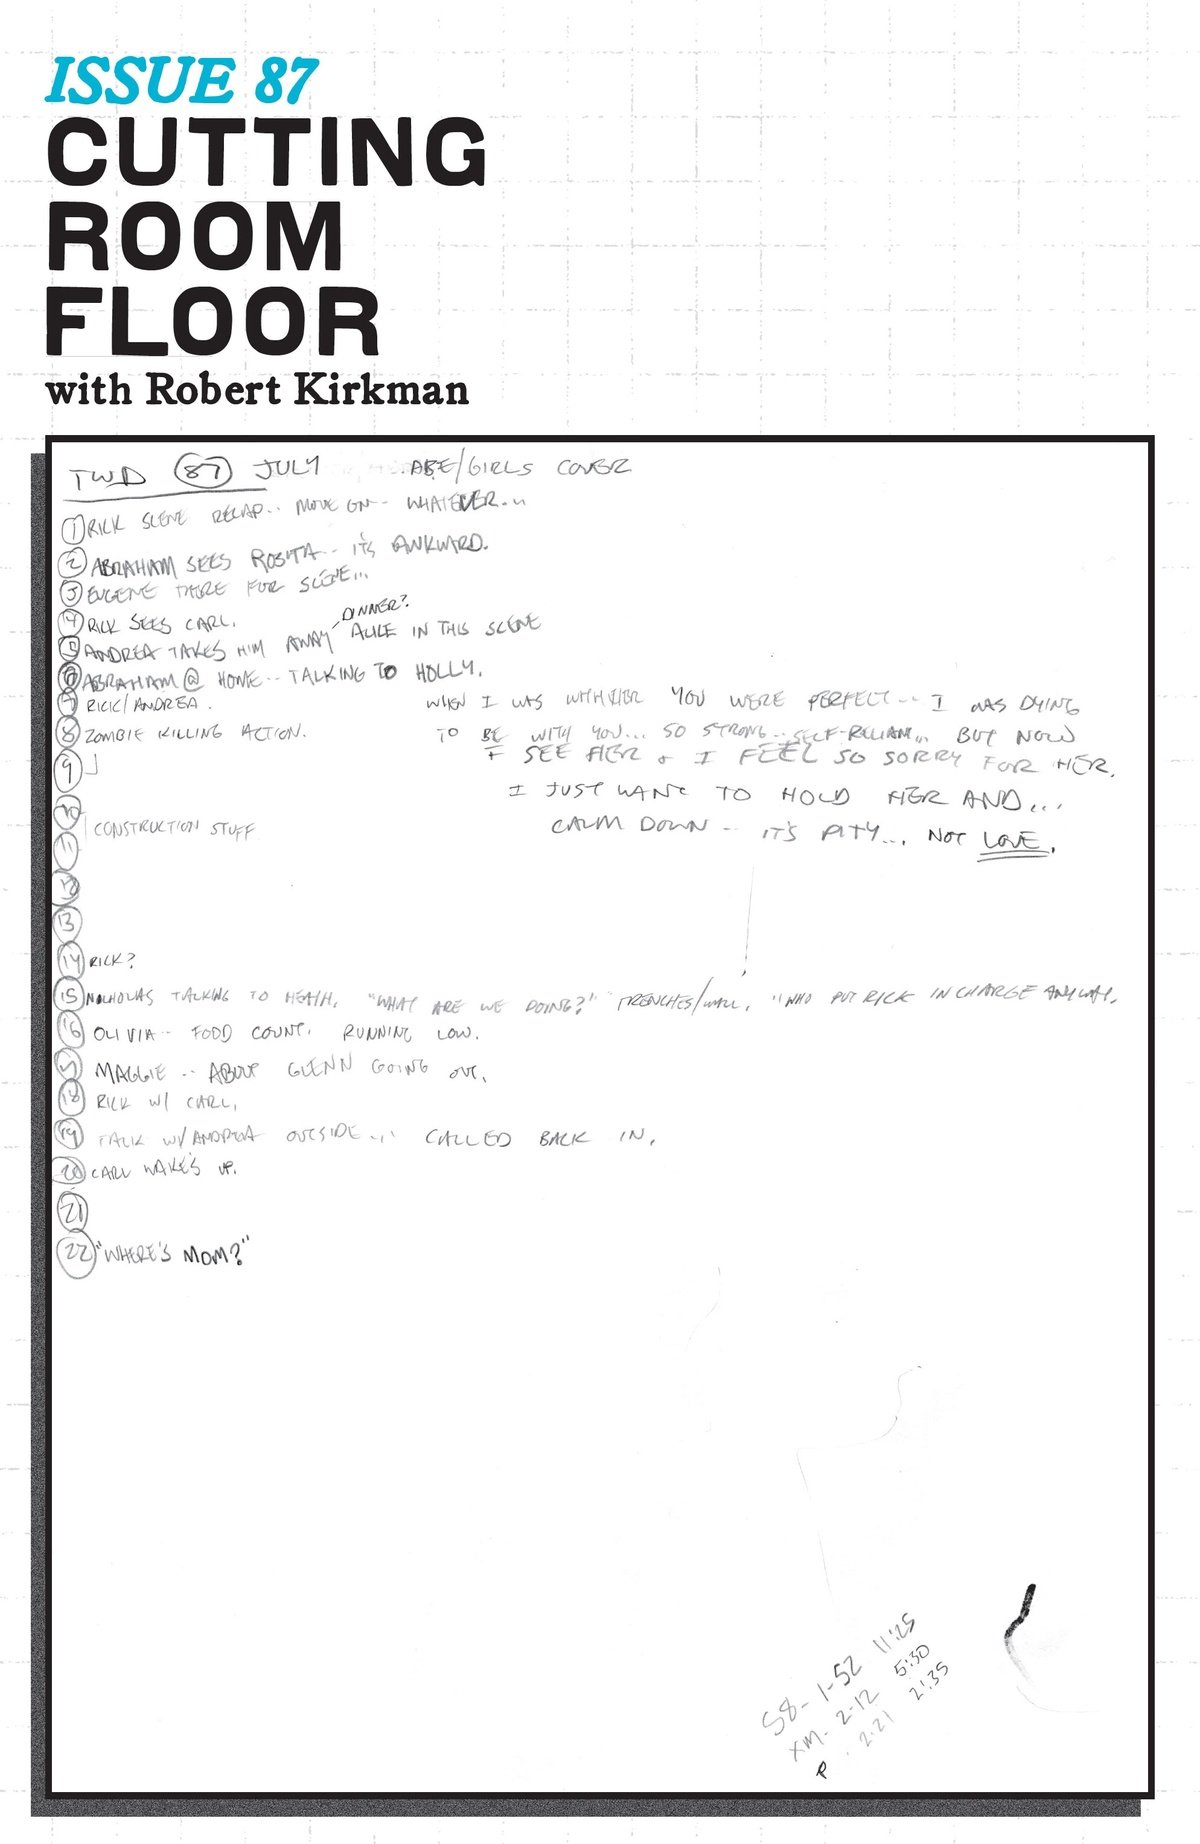 ISSUE 87
CUTTING
ROOM
FLOOR
with Robert Kirkman
TWD 87 JULY ABE/GIRLS COVER
1 RICK SCENE RECAP.. MOVE ON.. WHATEVER...
2 ABRAHAM SEES ROSITA.. IT'S AWKWARD.
3 EUGENE THERE FOR SCENE...
4 RICK SEES CARL.
DINNER?
5 ANDREA TAKES HIM AWAY ALICE IN THIS SCENE
6 ABRAHAM @ HOME.. TALKING TO HOLLY.
7 RICK/ANDREA.
8 ZOMBIE KILLING ACTION.
9
WHEN I WAS WITH HER YOU WERE PERFECT... I WAS DYING
TO BE WITH YOU... SO STRONG.. SELF-RELIAN... BUT NOW
I SEE HER + I FEEL SO SORRY FOR HER.
I JUST WANT TO HOLD HER AND...
CALM DOWN.. IT'S PITY... NOT LOVE.
10
CONSTRUCTION STUFF
11
12
13
14 RICK?
15 NICHOLAS TALKING TO HEATH. "WHAT ARE WE DOING?" TRENCHES/WALL. "WHO PUT RICK IN CHARGE ANYWAY.
16 OLIVIA.. FOOD COUNT. RUNNING LOW.
17 MAGGIE.. ABOUT GLENN GOING OUT.
18 RICK W/ CARL.
19 TALK W/ANDREA OUTSIDE... CALLED BACK IN.
20 CARL WAKE'S UP.
21
22 "WHERE'S MOM?"
58- 1-52 11:25
XM- 2-12 5:30
P 2:21 2:35